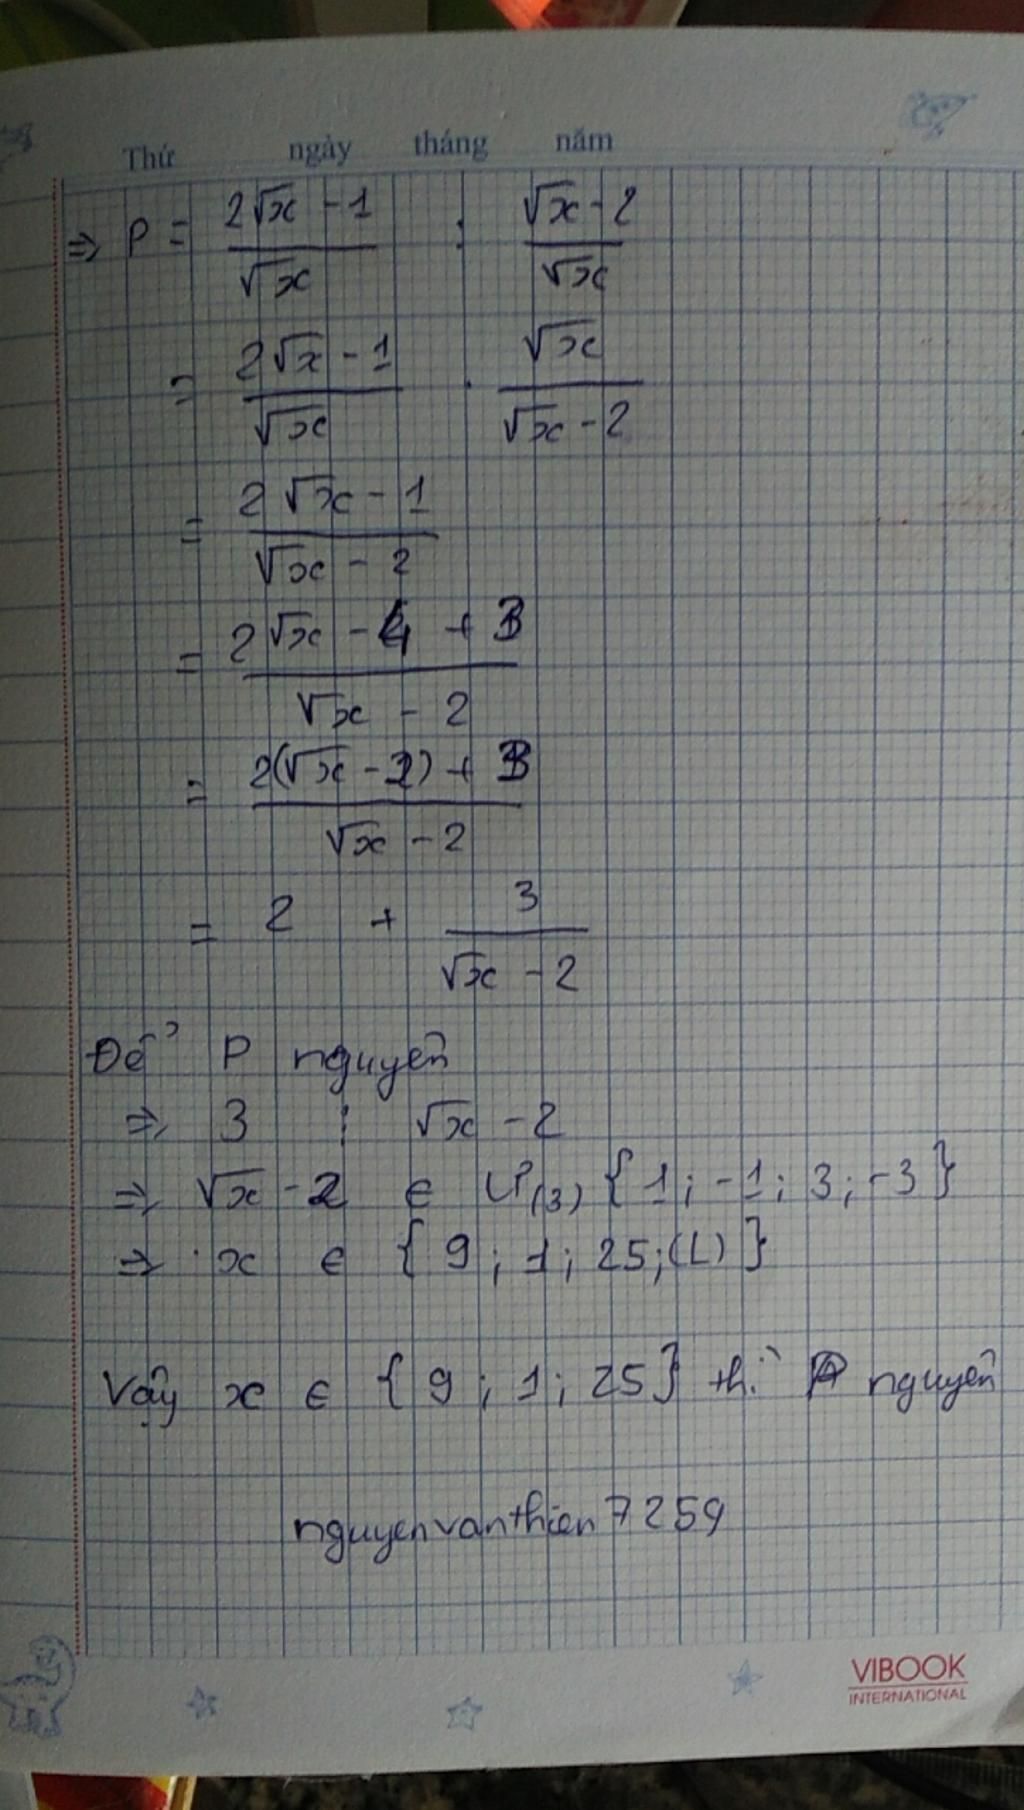 Thứ ngày tháng năm
=> P = (2√x - 1)/√x : (√x - 2)/√x
= (2√x - 1)/√x . √x/(√x - 2)
= (2√x - 1)/(√x - 2)
= (2√x - 4 + 3)/(√x - 2)
= (2(√x - 2) + 3)/(√x - 2)
= 2 + 3/(√x - 2)
Để P nguyên
=> 3 ⋮ √x - 2
=> √x - 2 ∈ Ư(3) {1; -1; 3; -3}
=> x ∈ {9; 1; 25; (L)}
Vậy x ∈ {9; 1; 25} thì P nguyên
nguyenvanthien7259
VIBOOK
INTERNATIONAL